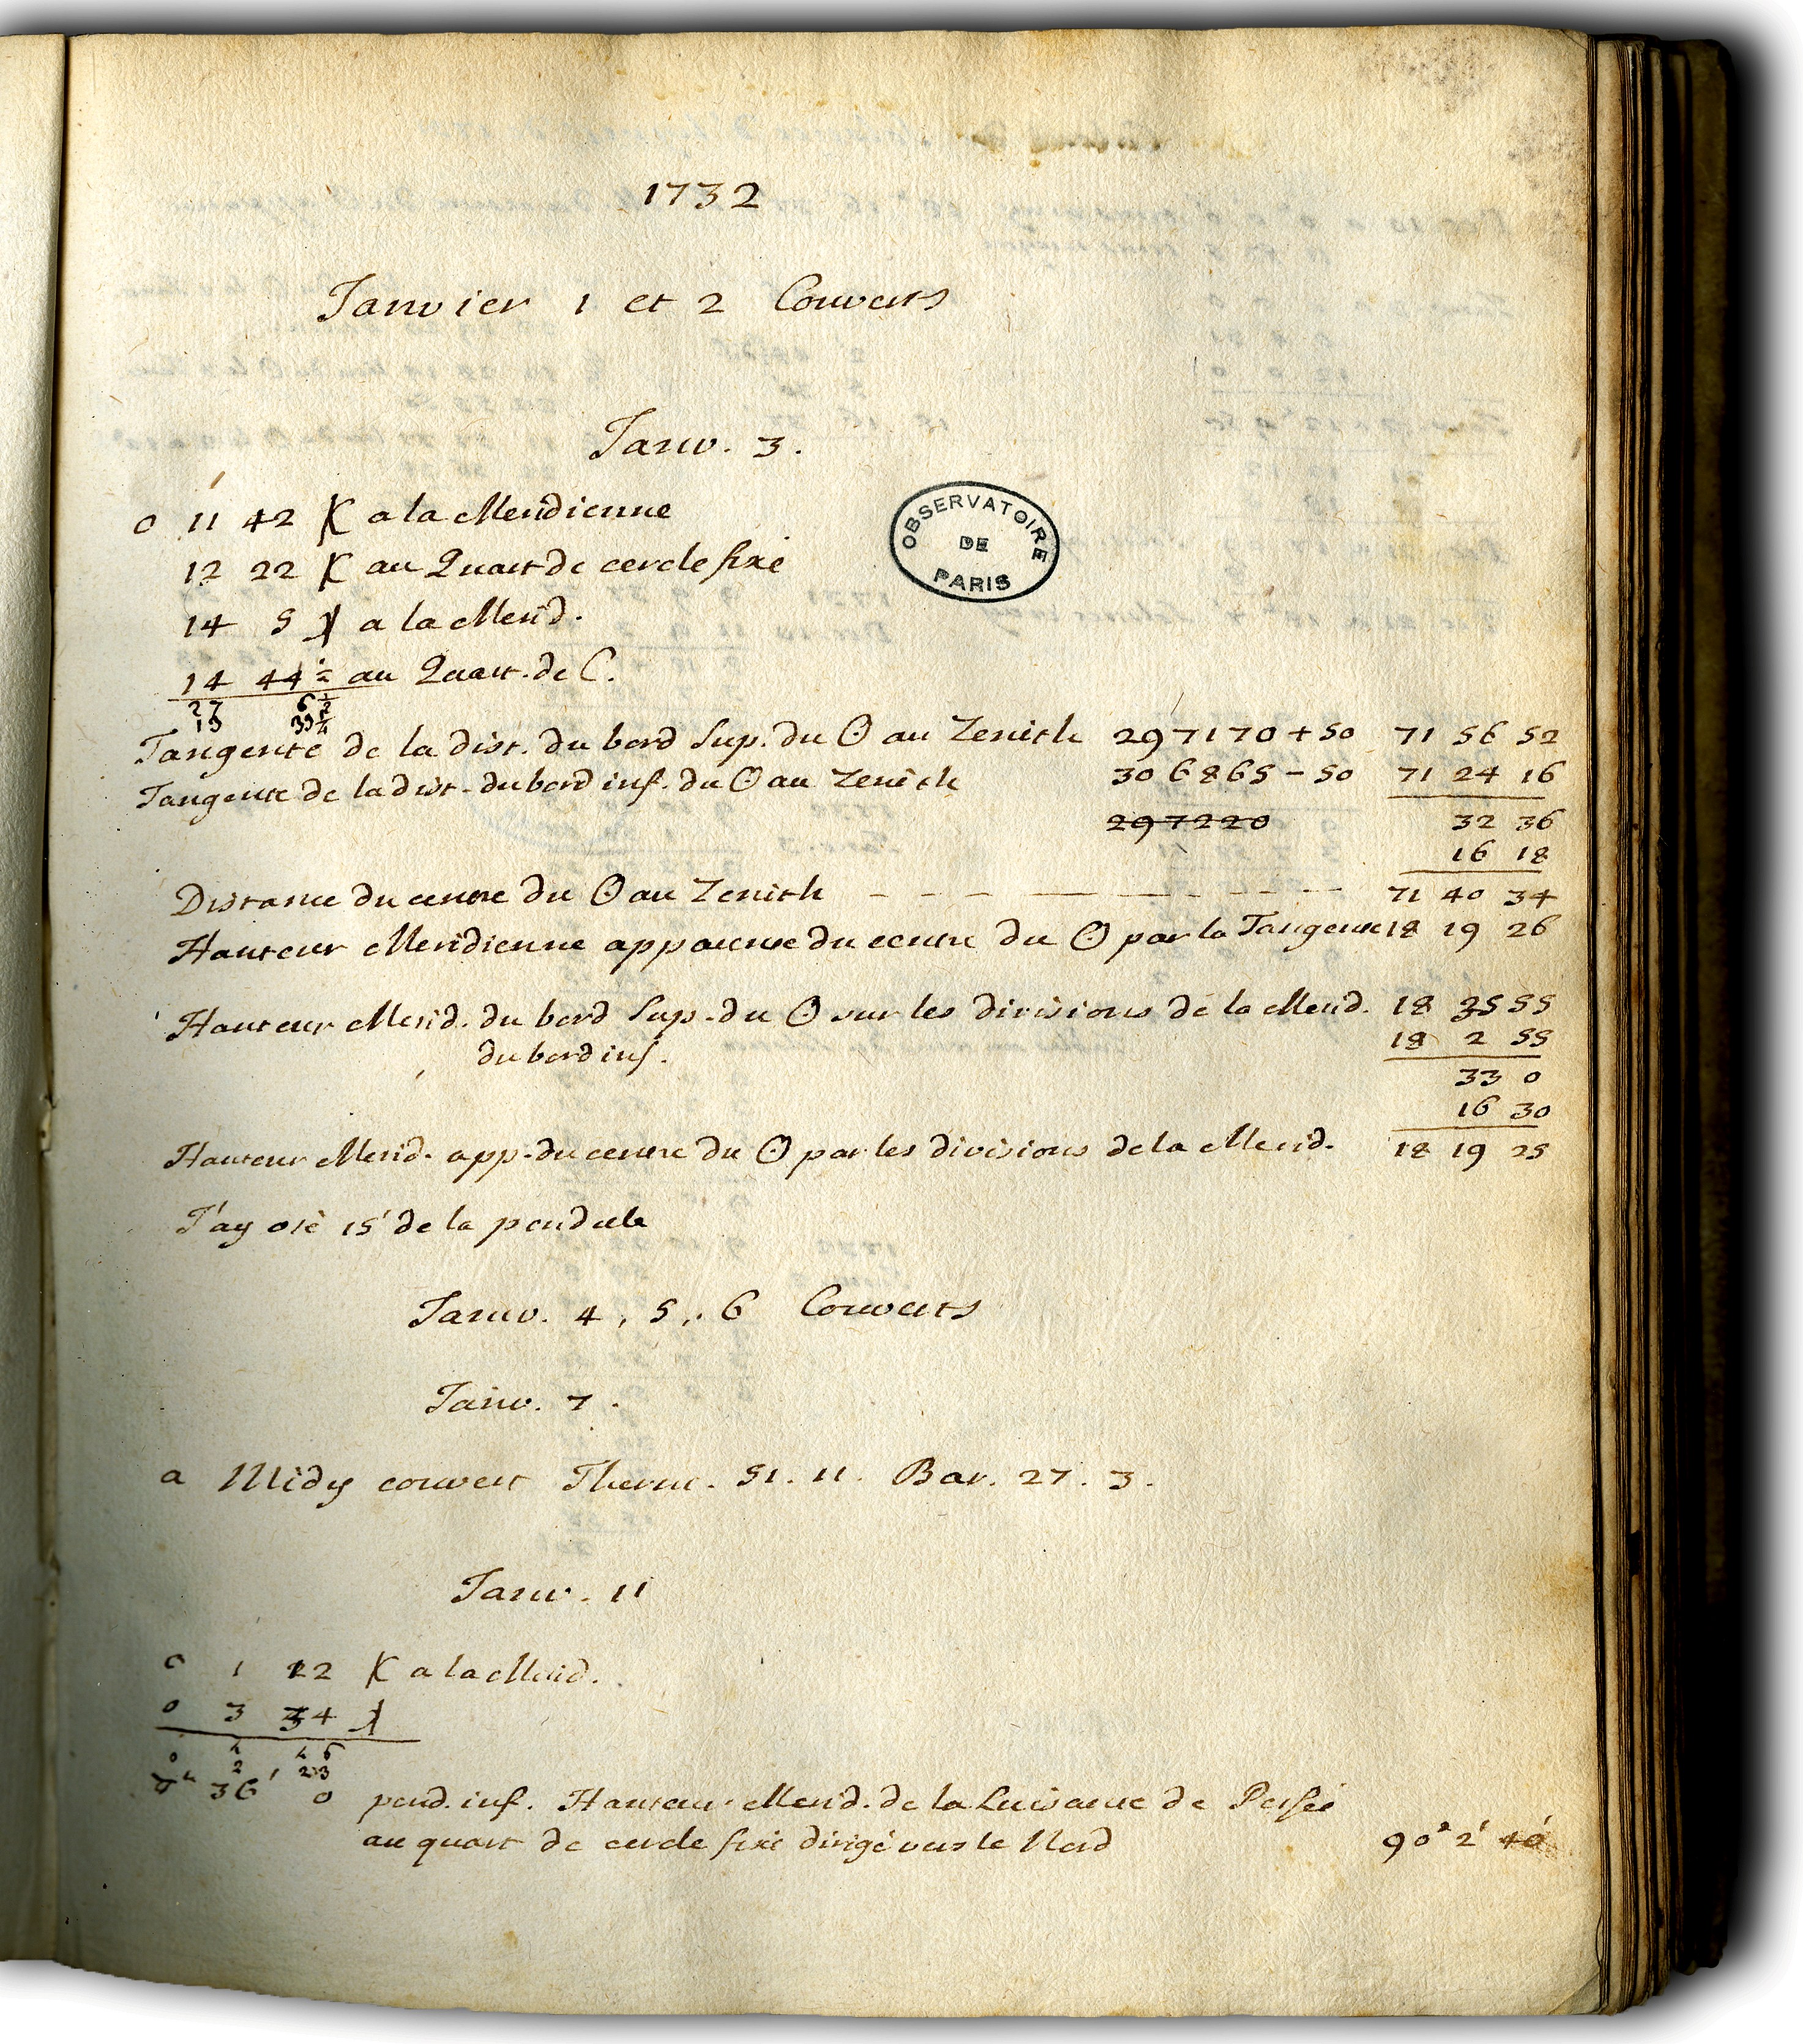 1732
Janvier 1 et 2 Couverts
Janv. 3.
0 11 42 a la Meridienne
12 22 au Quart de cercle fixe
14 5 a la Merid.
14 44 1/2 au Quart. de C.
27 6 1/2
13 33 1/4
OBSERVATOIRE DE PARIS
Tangente de la dist. du bord Sup. du ☉ au Zenith 297170 + 50 71 56 52
Tangente de la dist. du bord inf. du ☉ au Zenith 306865 - 50 71 24 16
297220 32 36
16 18
Distance du centre du ☉ au Zenith 71 40 34
Hauteur Meridienne apparente du centre du ☉ par la Tangente 18 19 26
Hauteur Merid. du bord Sup. du ☉ sur les divisions de la Merid. 18 35 55
du bord inf. 18 2 55
33 0
16 30
Hauteur Merid. app. du centre du ☉ par les divisions de la Merid. 18 19 25
J'ay oté 15' de la pendule
Janv. 4, 5, 6 Couverts
Janv. 7.
a Midy couvert Therm. 51. 11. Bar. 27. 3.
Janv. 11
0 1 12 a la Merid.
0 3 34
0 4 46
0 2 23
36' 0 pend. inf. Hauteur Merid. de la Luisante de Persée
au quart de cercle fixe dirigé vers le Nord 90° 2' 40"